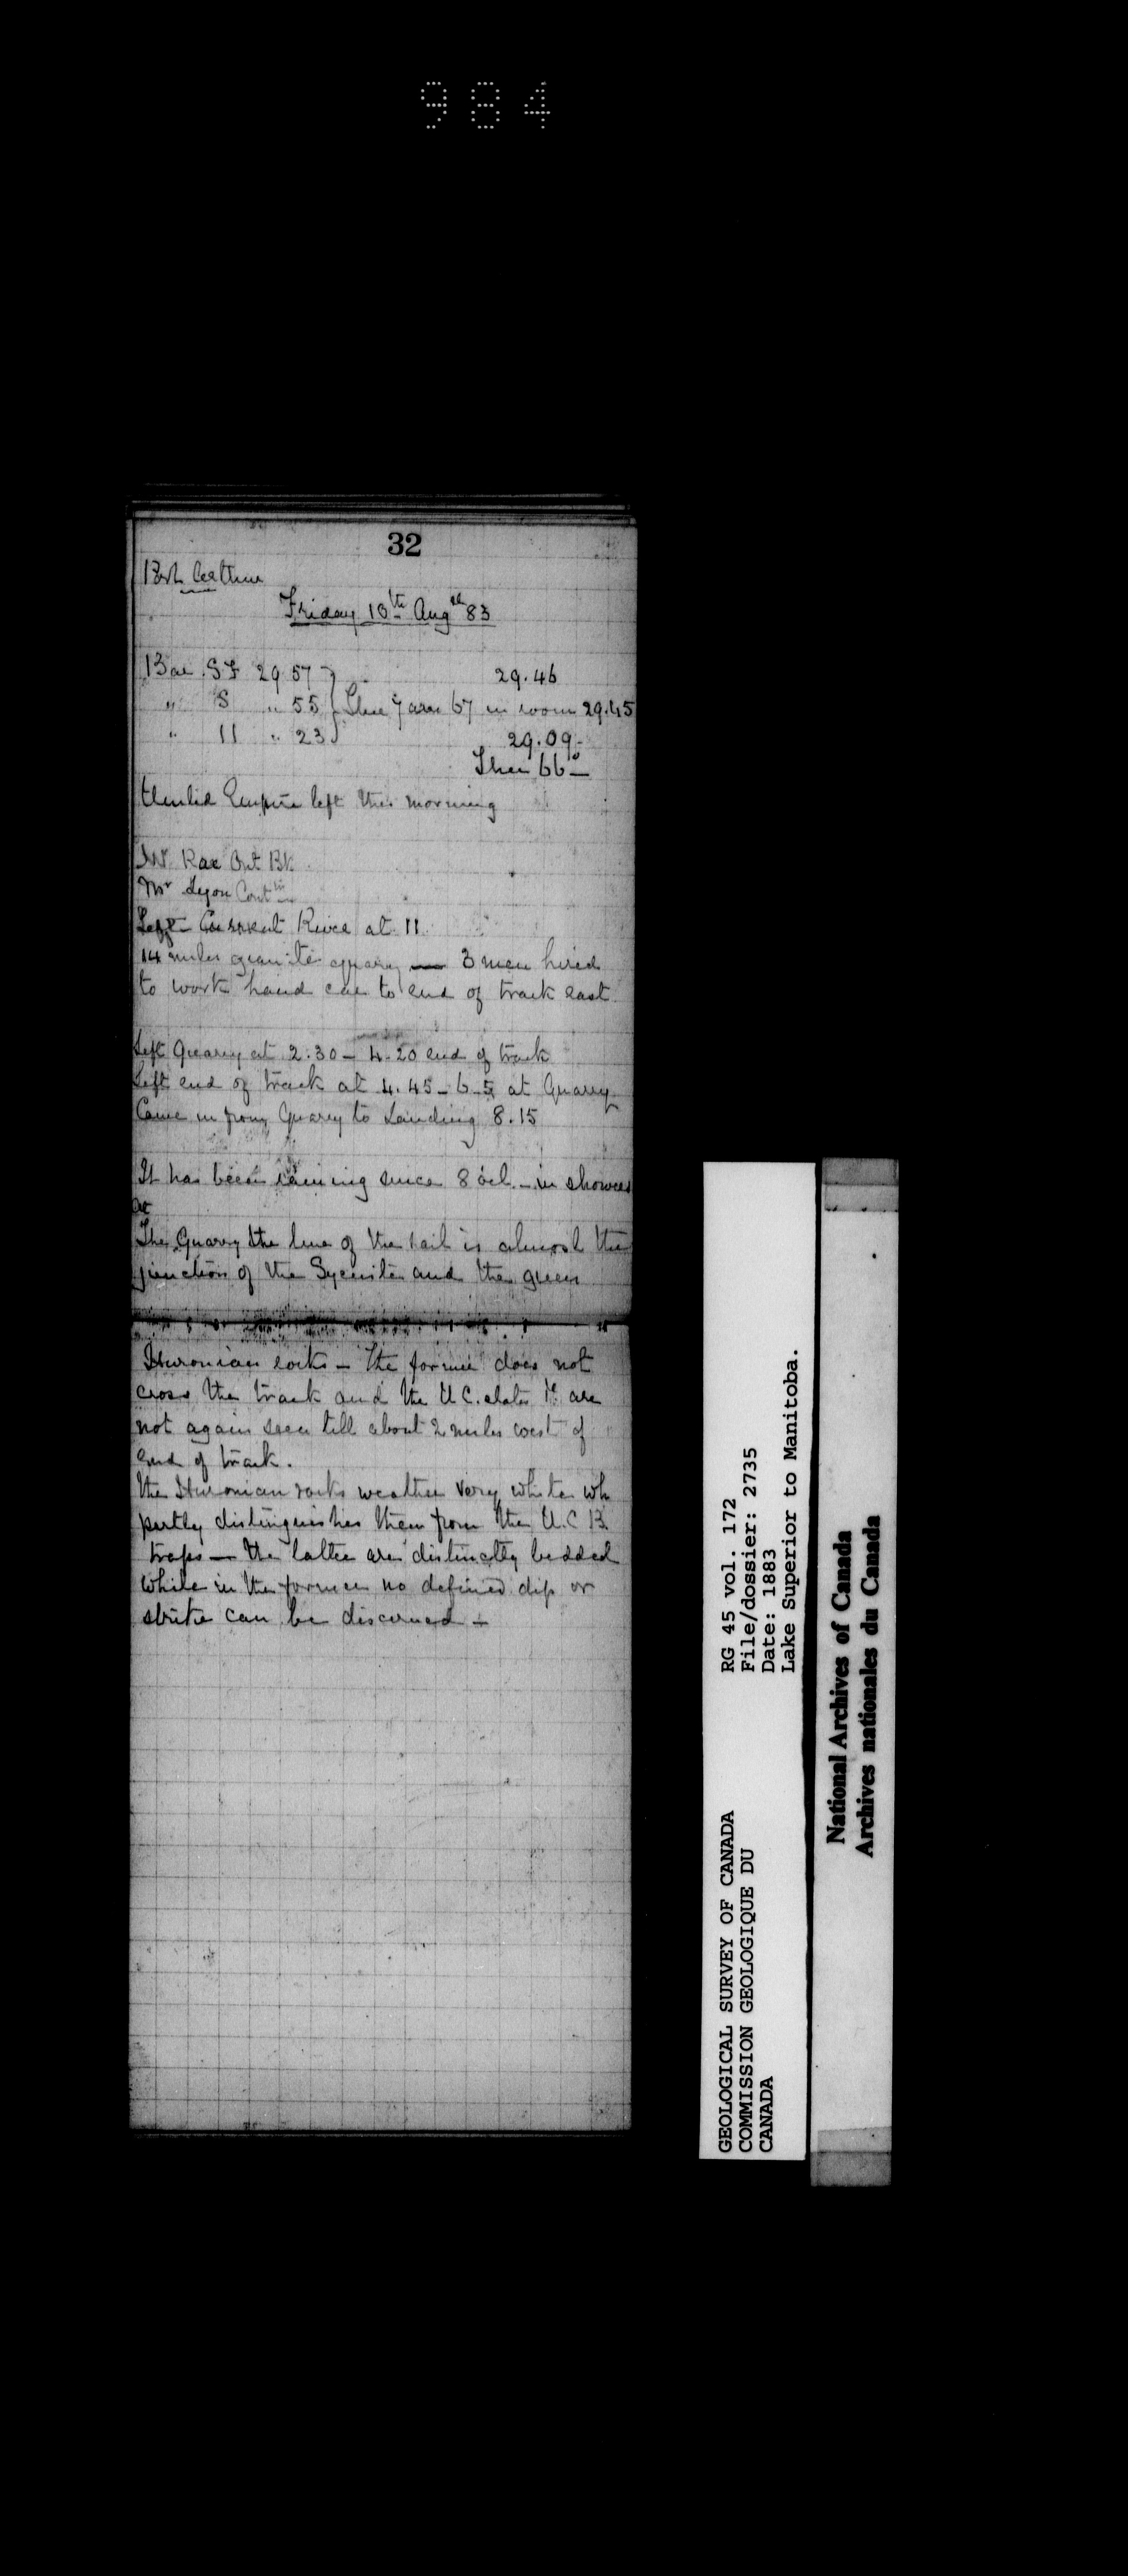 984
32
Port Arthur
Friday 10th Augst 83
Bar. S.F 29 57 } 29.46
" 8 " 55 } Ther 7 am 67 in room 29.45
" 11 " 23 } 29.09
Ther 66°
United Empire left this morning
Mr Rae Ont Bk
Mr Lyon
Left Current River at 11
14 miles granite quarry — 3 men hired
to work hand car to end of track east.
Left Quarry at 2.30 – 4.20 end of track
Left end of track at 4.45 – 6.5 at Quarry
Came in from Quarry to Landing 8.15
It has been raining since 8 ocl. – in showers
At
The Quarry the line of the rail is almost the
junction of the Syenite and the green
Huronian rocks – the former does not
cross the track and the U.C. slates are
not again seen till about 2 miles west of
end of track.
The Huronian rocks weather very white wh
partly distinguishes them from the U.C B.
traps — the latter are distinctly bedded
while in the former no defined dip or
strike can be discerned –
GEOLOGICAL SURVEY OF CANADA
COMMISSION GEOLOGIQUE DU
CANADA
RG 45 vol. 172
File/dossier: 2735
Date: 1883
Lake Superior to Manitoba.
National Archives of Canada
Archives nationales du Canada